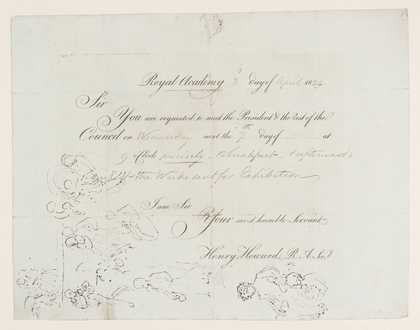 Royal Academy 3 day of April 1824
Sir
You are requested to meet the President & the rest of the
Council on Wednesday next the 7th day of at
9 oClock precisely - Breakfast
of the Works sent for Exhibition
I am Sir
Your most humble Servant
Henry Howard, R.A. Sec.